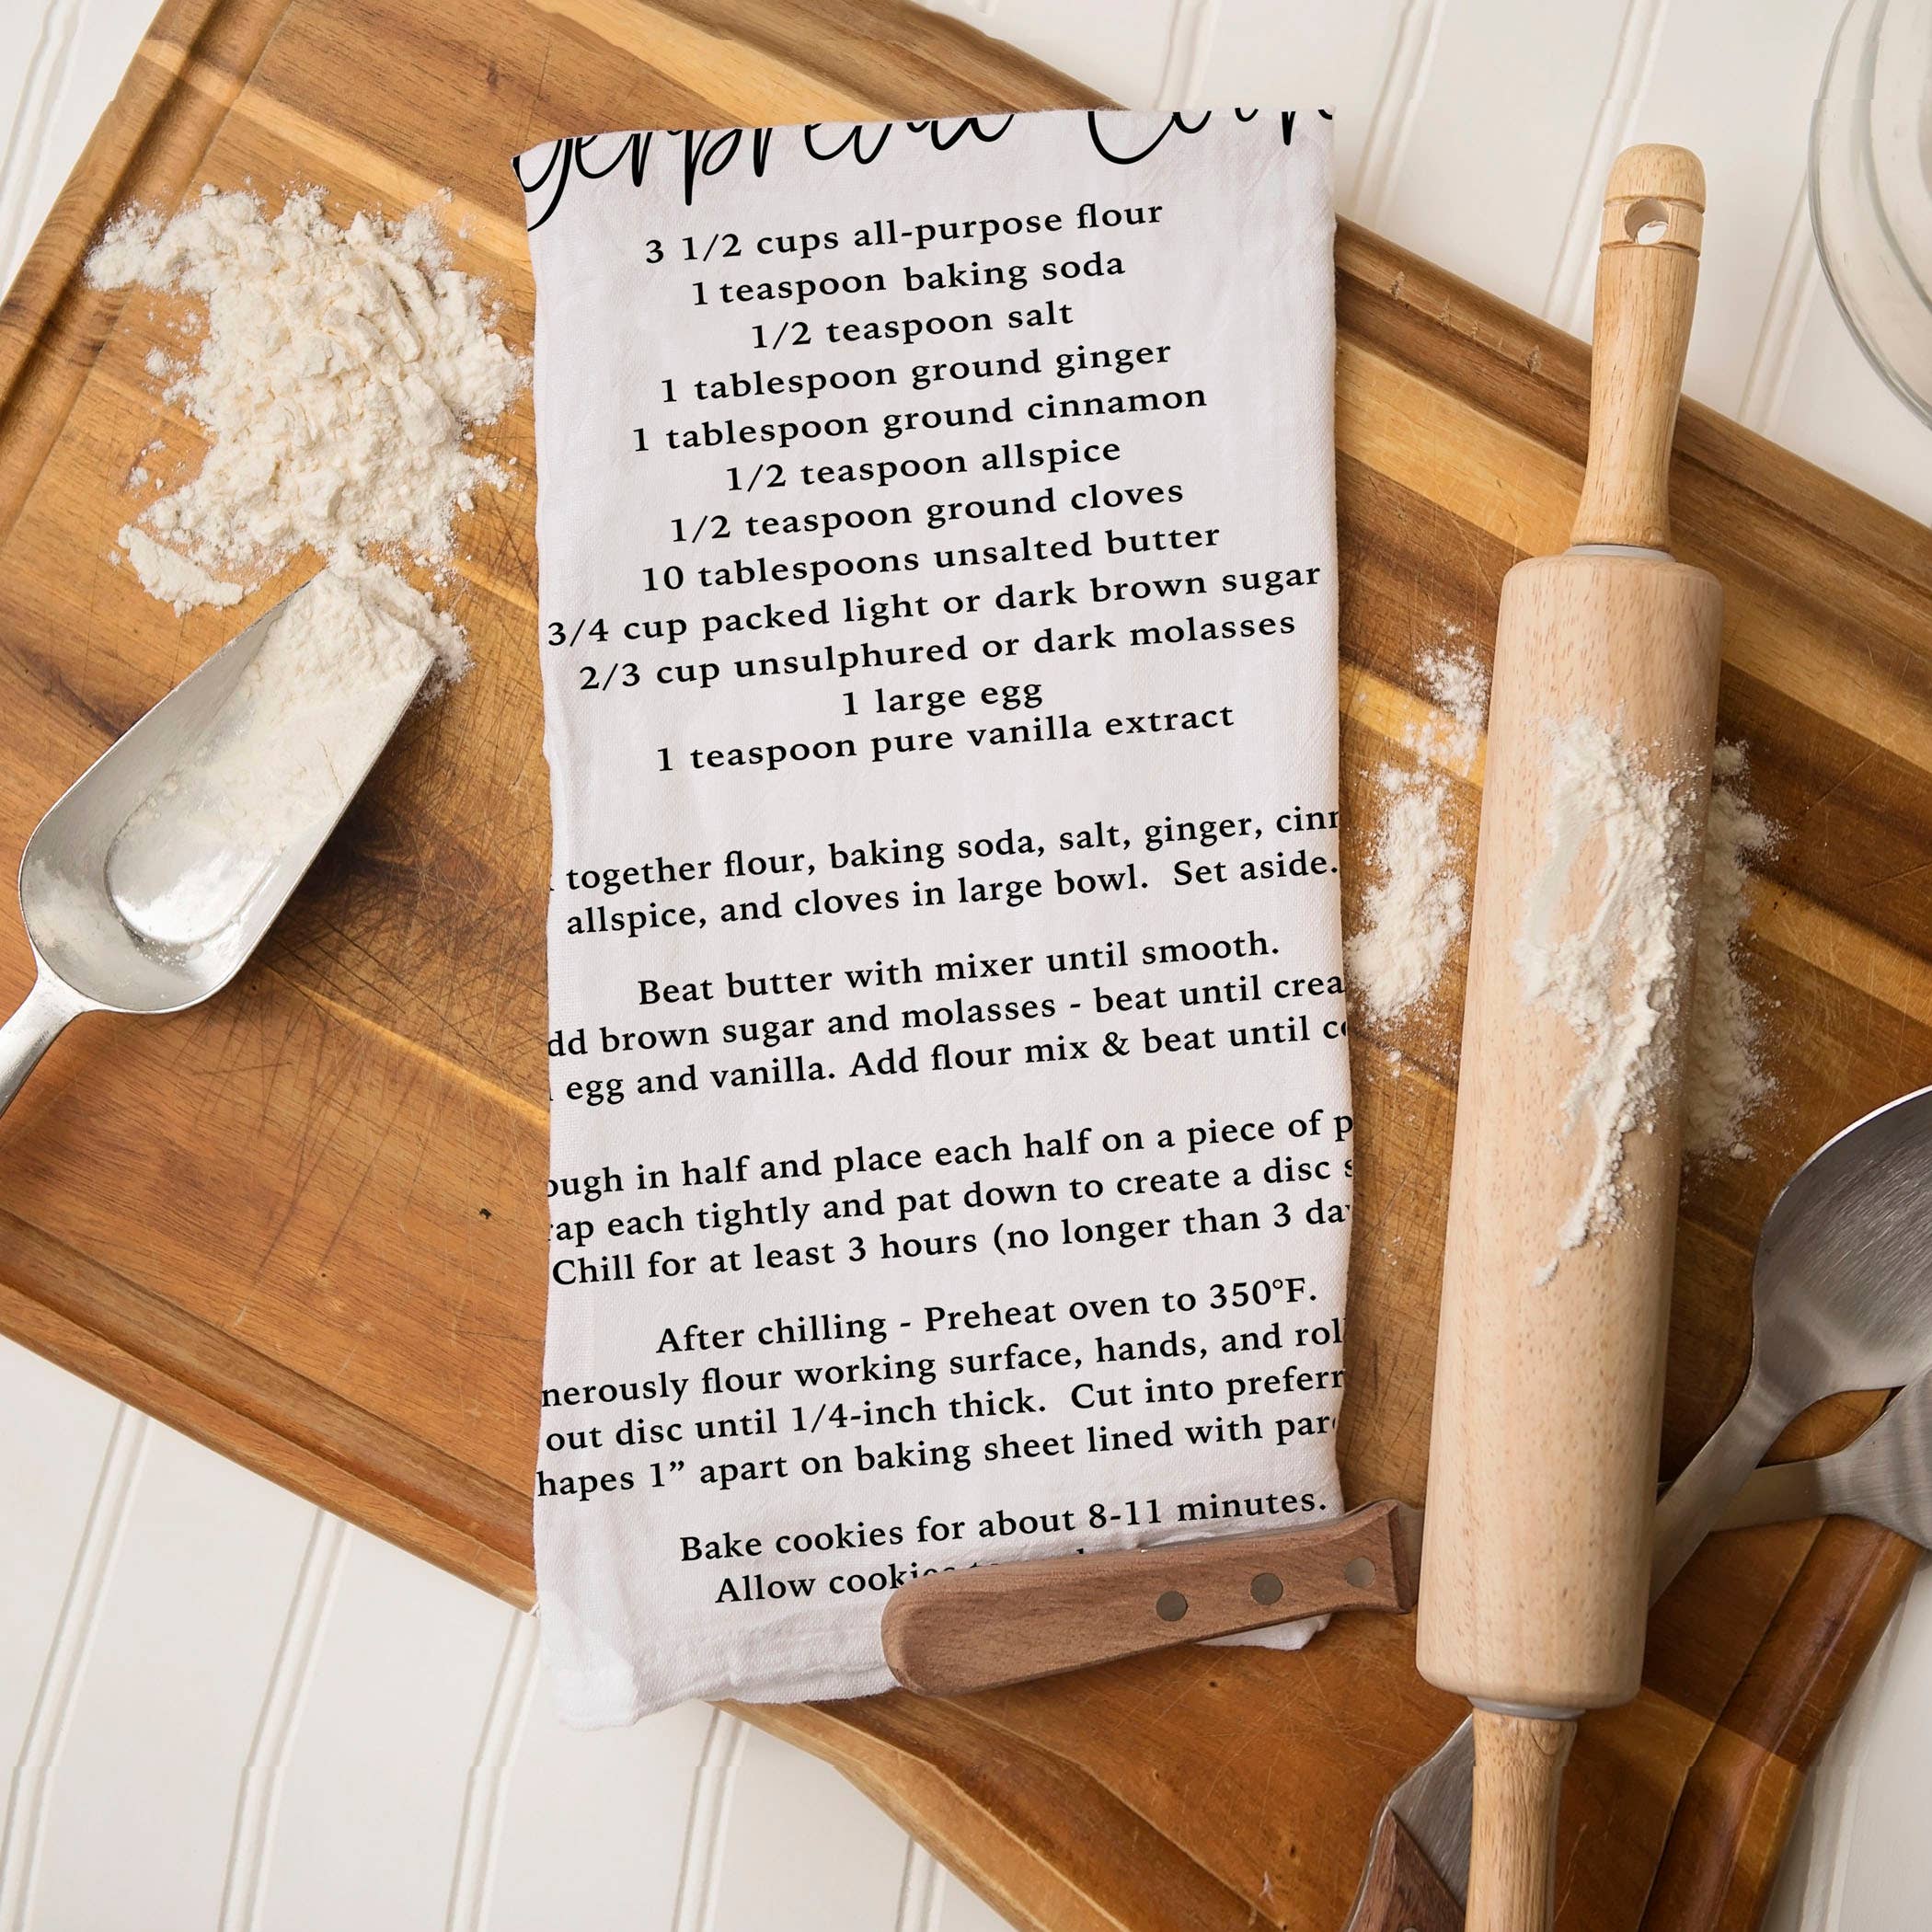 3 1/2 cups all-purpose flour
1 teaspoon baking soda
1/2 teaspoon salt
1 tablespoon ground ginger
1 tablespoon ground cinnamon
1/2 teaspoon allspice
1/2 teaspoon ground cloves
10 tablespoons unsalted butter
3/4 cup packed light or dark brown sugar
2/3 cup unsulphured or dark molasses
1 large egg
1 teaspoon pure vanilla extract
together flour, baking soda, salt, ginger, cinn
allspice, and cloves in large bowl. Set aside.
Beat butter with mixer until smooth.
dd brown sugar and molasses - beat until crea
egg and vanilla. Add flour mix & beat until c
ough in half and place each half on a piece of p
ap each tightly and pat down to create a disc s
Chill for at least 3 hours (no longer than 3 da
After chilling - Preheat oven to 350°F.
nerously flour working surface, hands, and rol
out disc until 1/4-inch thick. Cut into preferr
hapes 1” apart on baking sheet lined with par
Bake cookies for about 8-11 minutes.
Allow